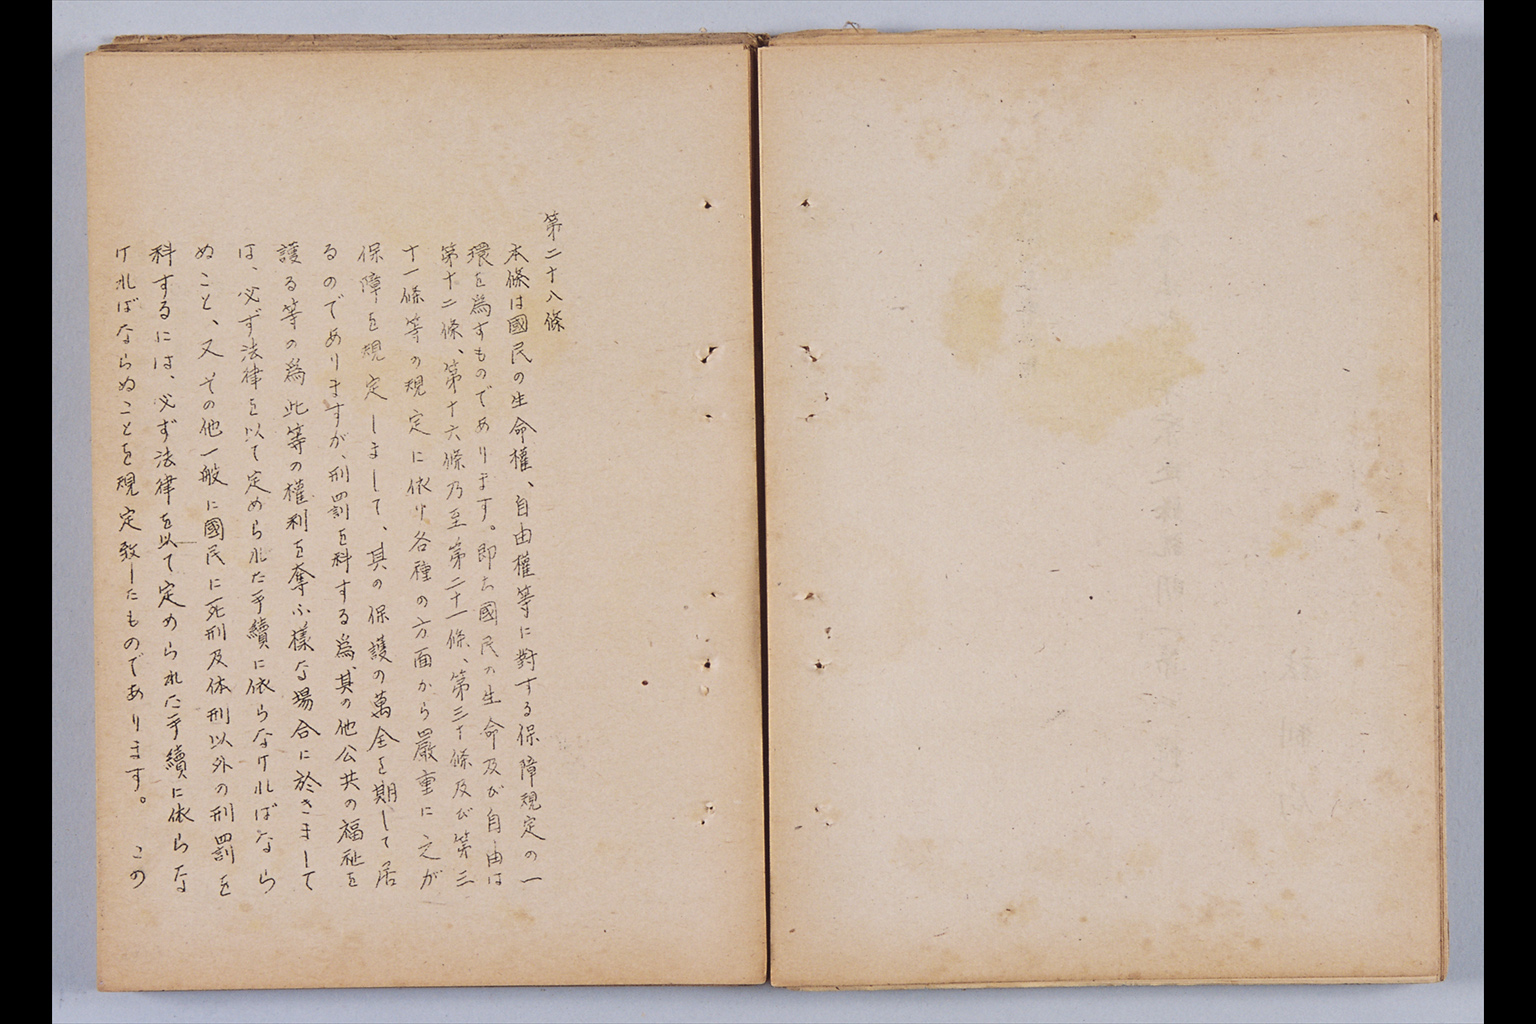 第二十八條
本條は國民の生命權、自由權等に對する保障規定の一
環を爲すものであります。即ち國民の生命及び自由は
第十二條、第十六條乃至第二十一條、第三十條及び第三
十一條等の規定に依り各種の方面から嚴重に之が
保障を規定しまして、其の保護の萬全を期して居
るのでありますが、刑罰を科する爲、其の他公共の福祉を
護る等の爲此等の權利を奪ふ樣な場合に於きまして
は、必ず法律を以て定められた手續に依らなければなら
ぬこと、又その他一般に國民に死刑及体刑以外の刑罰を
科するには、必ず法律を以て定められた手續に依らな
ければならぬことを規定致したものであります。この